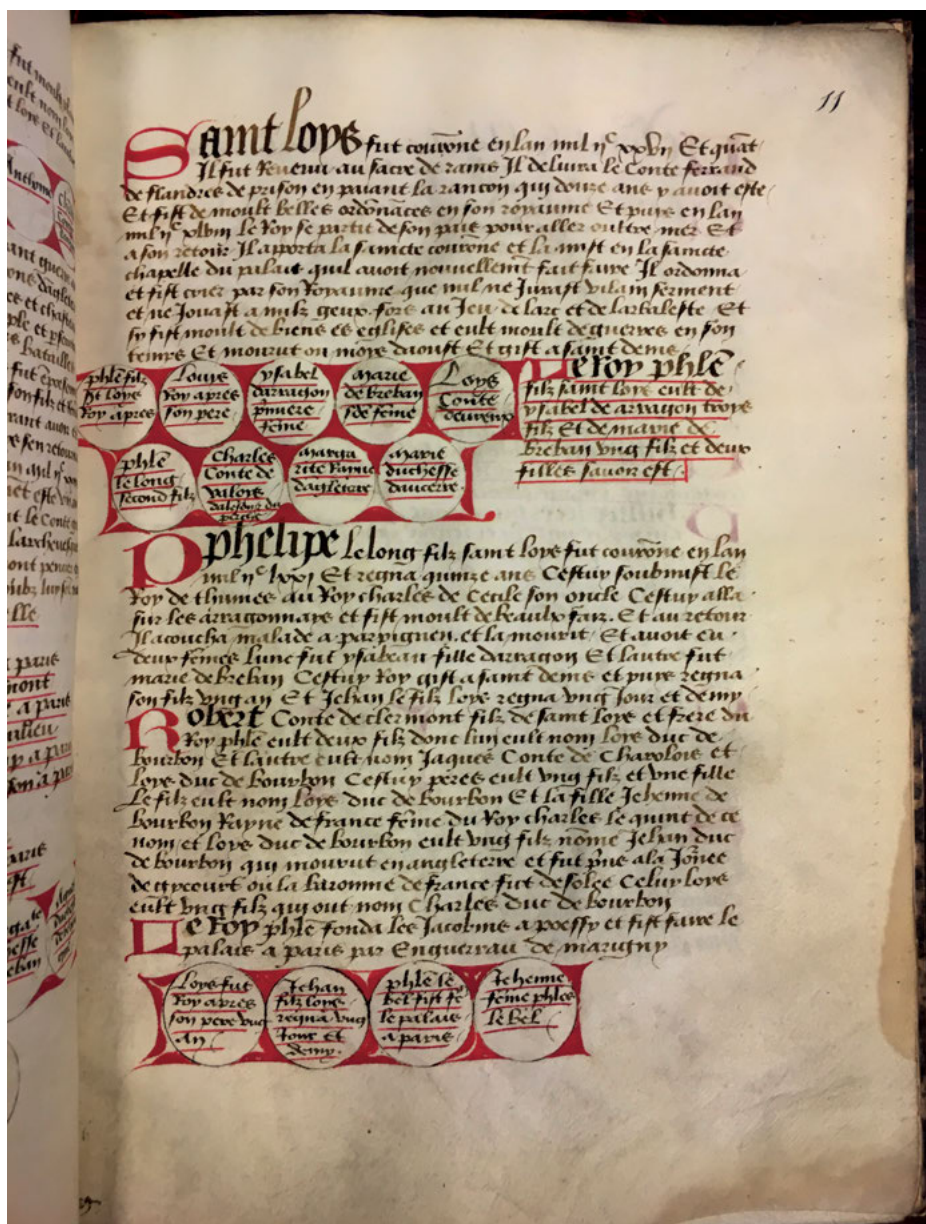 11
Saint loys fut courōne en lan mil ijc xxvij Et quāt
Il fut Revenu au sacre de rams Il delivra le Conte ferrand
de flandres de prison en paiant la rancon qui douze ans y avoit este
Et fist de moult belles ordōnāces en son royaume Et puis en lan
mil ijc xlviij le Roy se partit de son pais pour aller oultre mer Et
a son retour Il apporta la saincte courōne et la mist en la saincte
chapelle du palais quil avoit nouvellemēt fait faire Il ordonna
et fist crier par son Royaume que nul ne Jurast vilain serment
et ne Jouast a nulz geux fors au Jeu de larc et de larbaleste Et
sy fist moult de biens es eglises et eult moult de guerres en son
temps Et mourut ou moys daoust Et gist a saint denis
phlē filz
st loys
Roy apres
Louis
Roy apres
son pere
ysabel
darragon
pmiere
feme
marie
de breban
sde feme
Loys
Conte
deureux
Le roy phlē
filz saint loys eult de
ysabel de arragon troys
filz Et de marie de
breban ung filz et deux
filles savoir est
phlē
le long
second filz
Charles
Conte de
valoys
marga
rite Rayne
dāgleterre
marie
duchesse
daucerre
Phelipe le long filz saint loys fut courōne en lan
mil ijc lxxj Et regna quinze ans Cestuy soubmist le
Roy de thunes au Roy charles de Cecile son oncle Cestuy alla
sur les arragonnays et fist moult de beaulx fair. Et au retour
Il acoucha malade a parpignen. et la mourut. Et avoit eu
deux fēmes Lune fut ysabeau fille darragon Et lautre fut
marie de breban Cestuy Roy gist a saint denis et puys regna
son filz ung an Et Jehan le filz loys regna ung Jour et demy
Robert Conte de clermont filz de saint loys et frere du
Roy phlē eult deux filz donc lun eult nom loys duc de
bourbon Et lautre eult nom Jaques Conte de Charolois et
loys duc de bourbon Cestuy peres eult ung filz et une fille
Le filz eult nom loys duc de bourbon Et la fille Jehenne de
bourbon Rayne de france fēme du Roy charles le quint de ce
nom et loys duc de bourbon eult ung filz nōme Jehan duc
de bourbon qui mourut en angleterre et fut pīns a la Jōnee
de gycourt ou la baronnie de france fut desolee Celuy loys
eult ung filz qui out nom Charles duc de bourbon
Le roy phlē fonda les Jacobins a poessy et fist faire le
palais a paris par Enguerrau de marigny
Loys fut
Roy apres
son pere ung
an
Jehan
filz loys
regna ung
Jour et
demy.
phlē le
bel fist fe
le palais
a paris
Jehenne
fēme phles
le bel